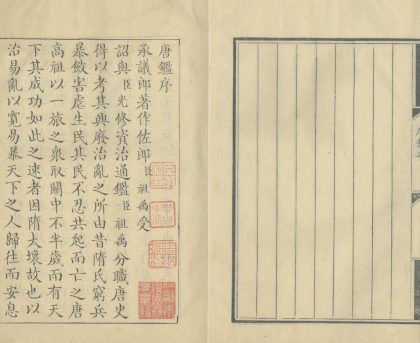 唐鑑序
承議郎著作佐郎臣祖禹受
詔與臣光修資治通鑑臣祖禹分職唐史
得以考其興廢治亂之所由昔隋氏窮兵
暴斂害虐生民其民不忍共起而亡之唐
高祖以一旅之衆取關中不半歲而有天
下其成功如此之速者因隋大壞故也以
治易亂以寬易暴天下之人歸往而安息